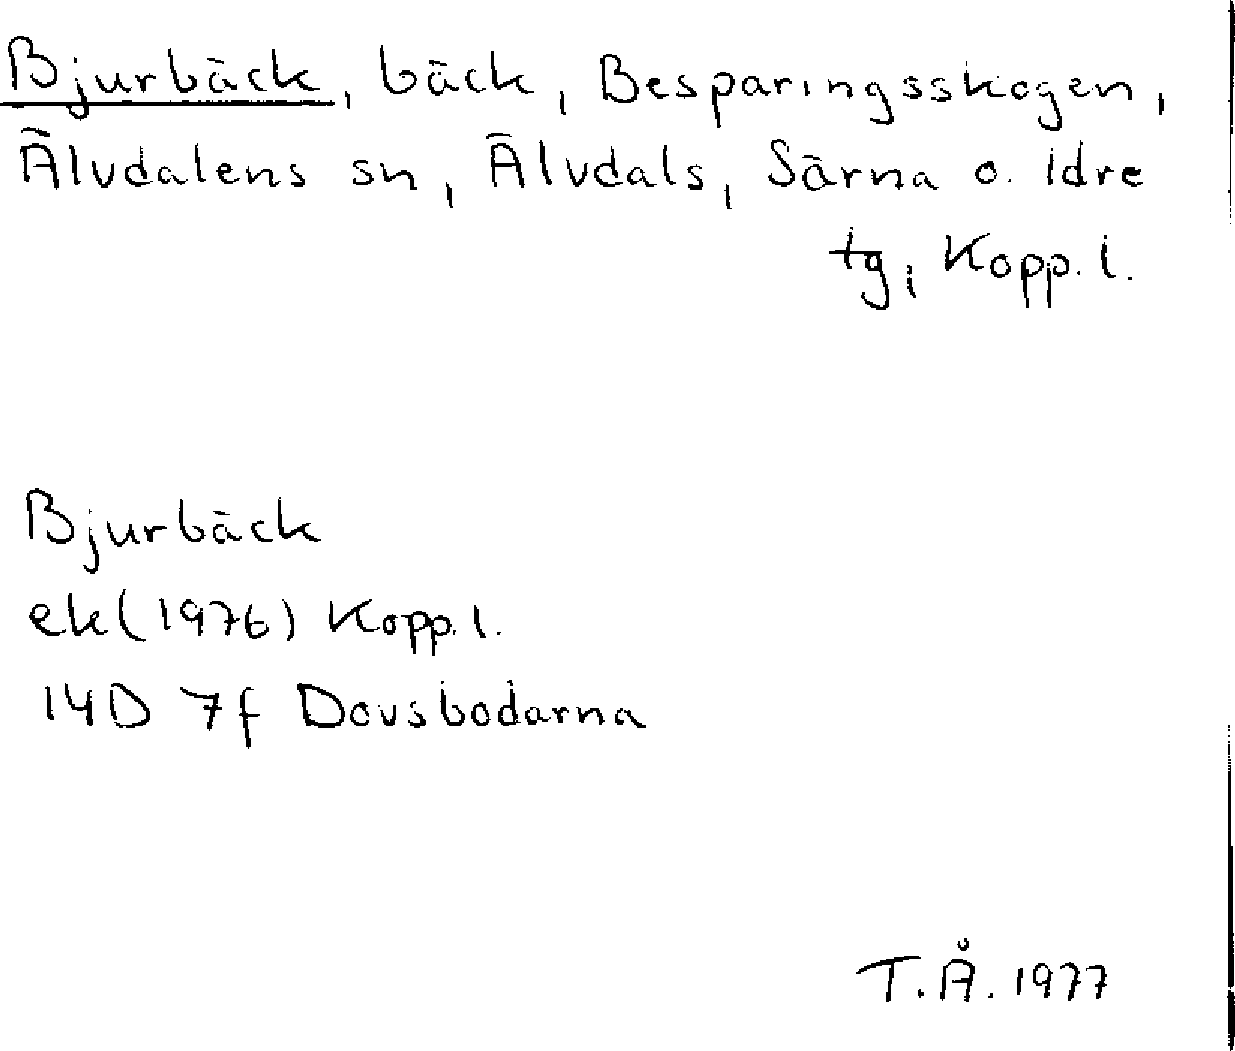 Bjurbäck, bäck, Besparingsskogen,
Älvdalens sn, Älvdals, Särna o. Idre
tg, Kopp. l.
Bjurbäck
ek(1976) Kopp. l.
14D 7f Dovsbodarna
T.Å. 1977